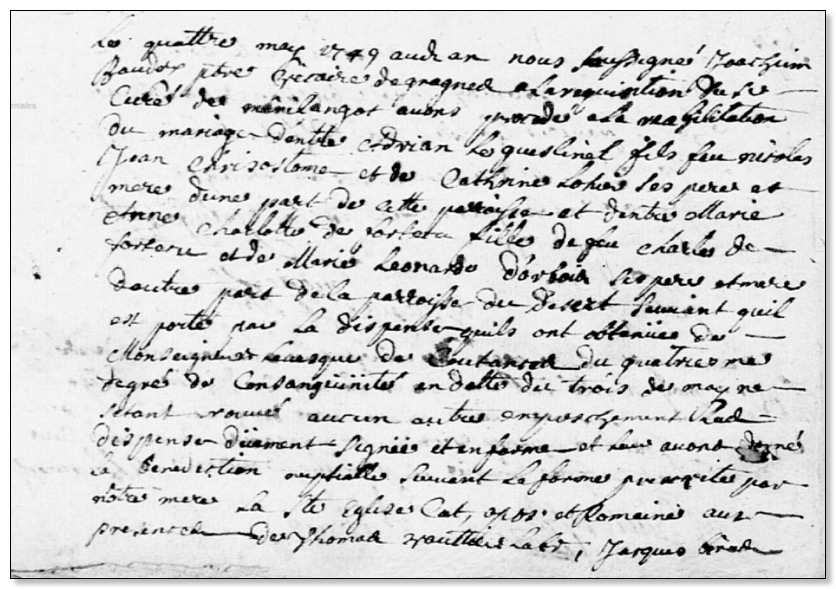 Le quattre may 1749 audran nous soussigné Joachim
Baudet ptre vicaire de gragned a la requisition du sr
Curé de mesnilangot avons procedé a la rehabilitation
du mariage dentre Adrian Le queslinel fils feu nicolas
Jean Chrisostome et de Cathrine Loher ses pere et
mere dune part de cette parroisse et dentre Marie
Anne Charlotte de forteru fille de feu Charles de
forteru et de Marie Leonarde ses pere et mere
dautre part de la parroisse du desert suivant quil
est porté par la dispense quils ont obtenüe de
Monseigneur levesque de Coutances du quatriesme
degré de Consanguinité en datte du trois de may ne
setant trouvé aucun autre empeschement lad
dispense düement signée et en forme et leur avons donné
la benediction nuptialle suivant la forme prescrite par
nôtre mere La Ste Eglise Cat, apos, et Romaine aux
presences de Thomas , Jacques